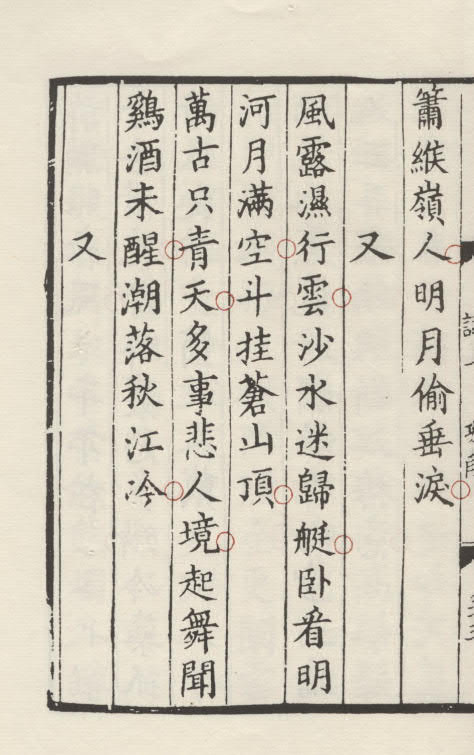 簫緱嶺人明月偷垂淚
又
風露濕行雲沙水迷歸艇卧看明
河月滿空斗挂蒼山頂
萬古只青天多事悲人境起舞聞
鷄酒未醒潮落秋江冷
又